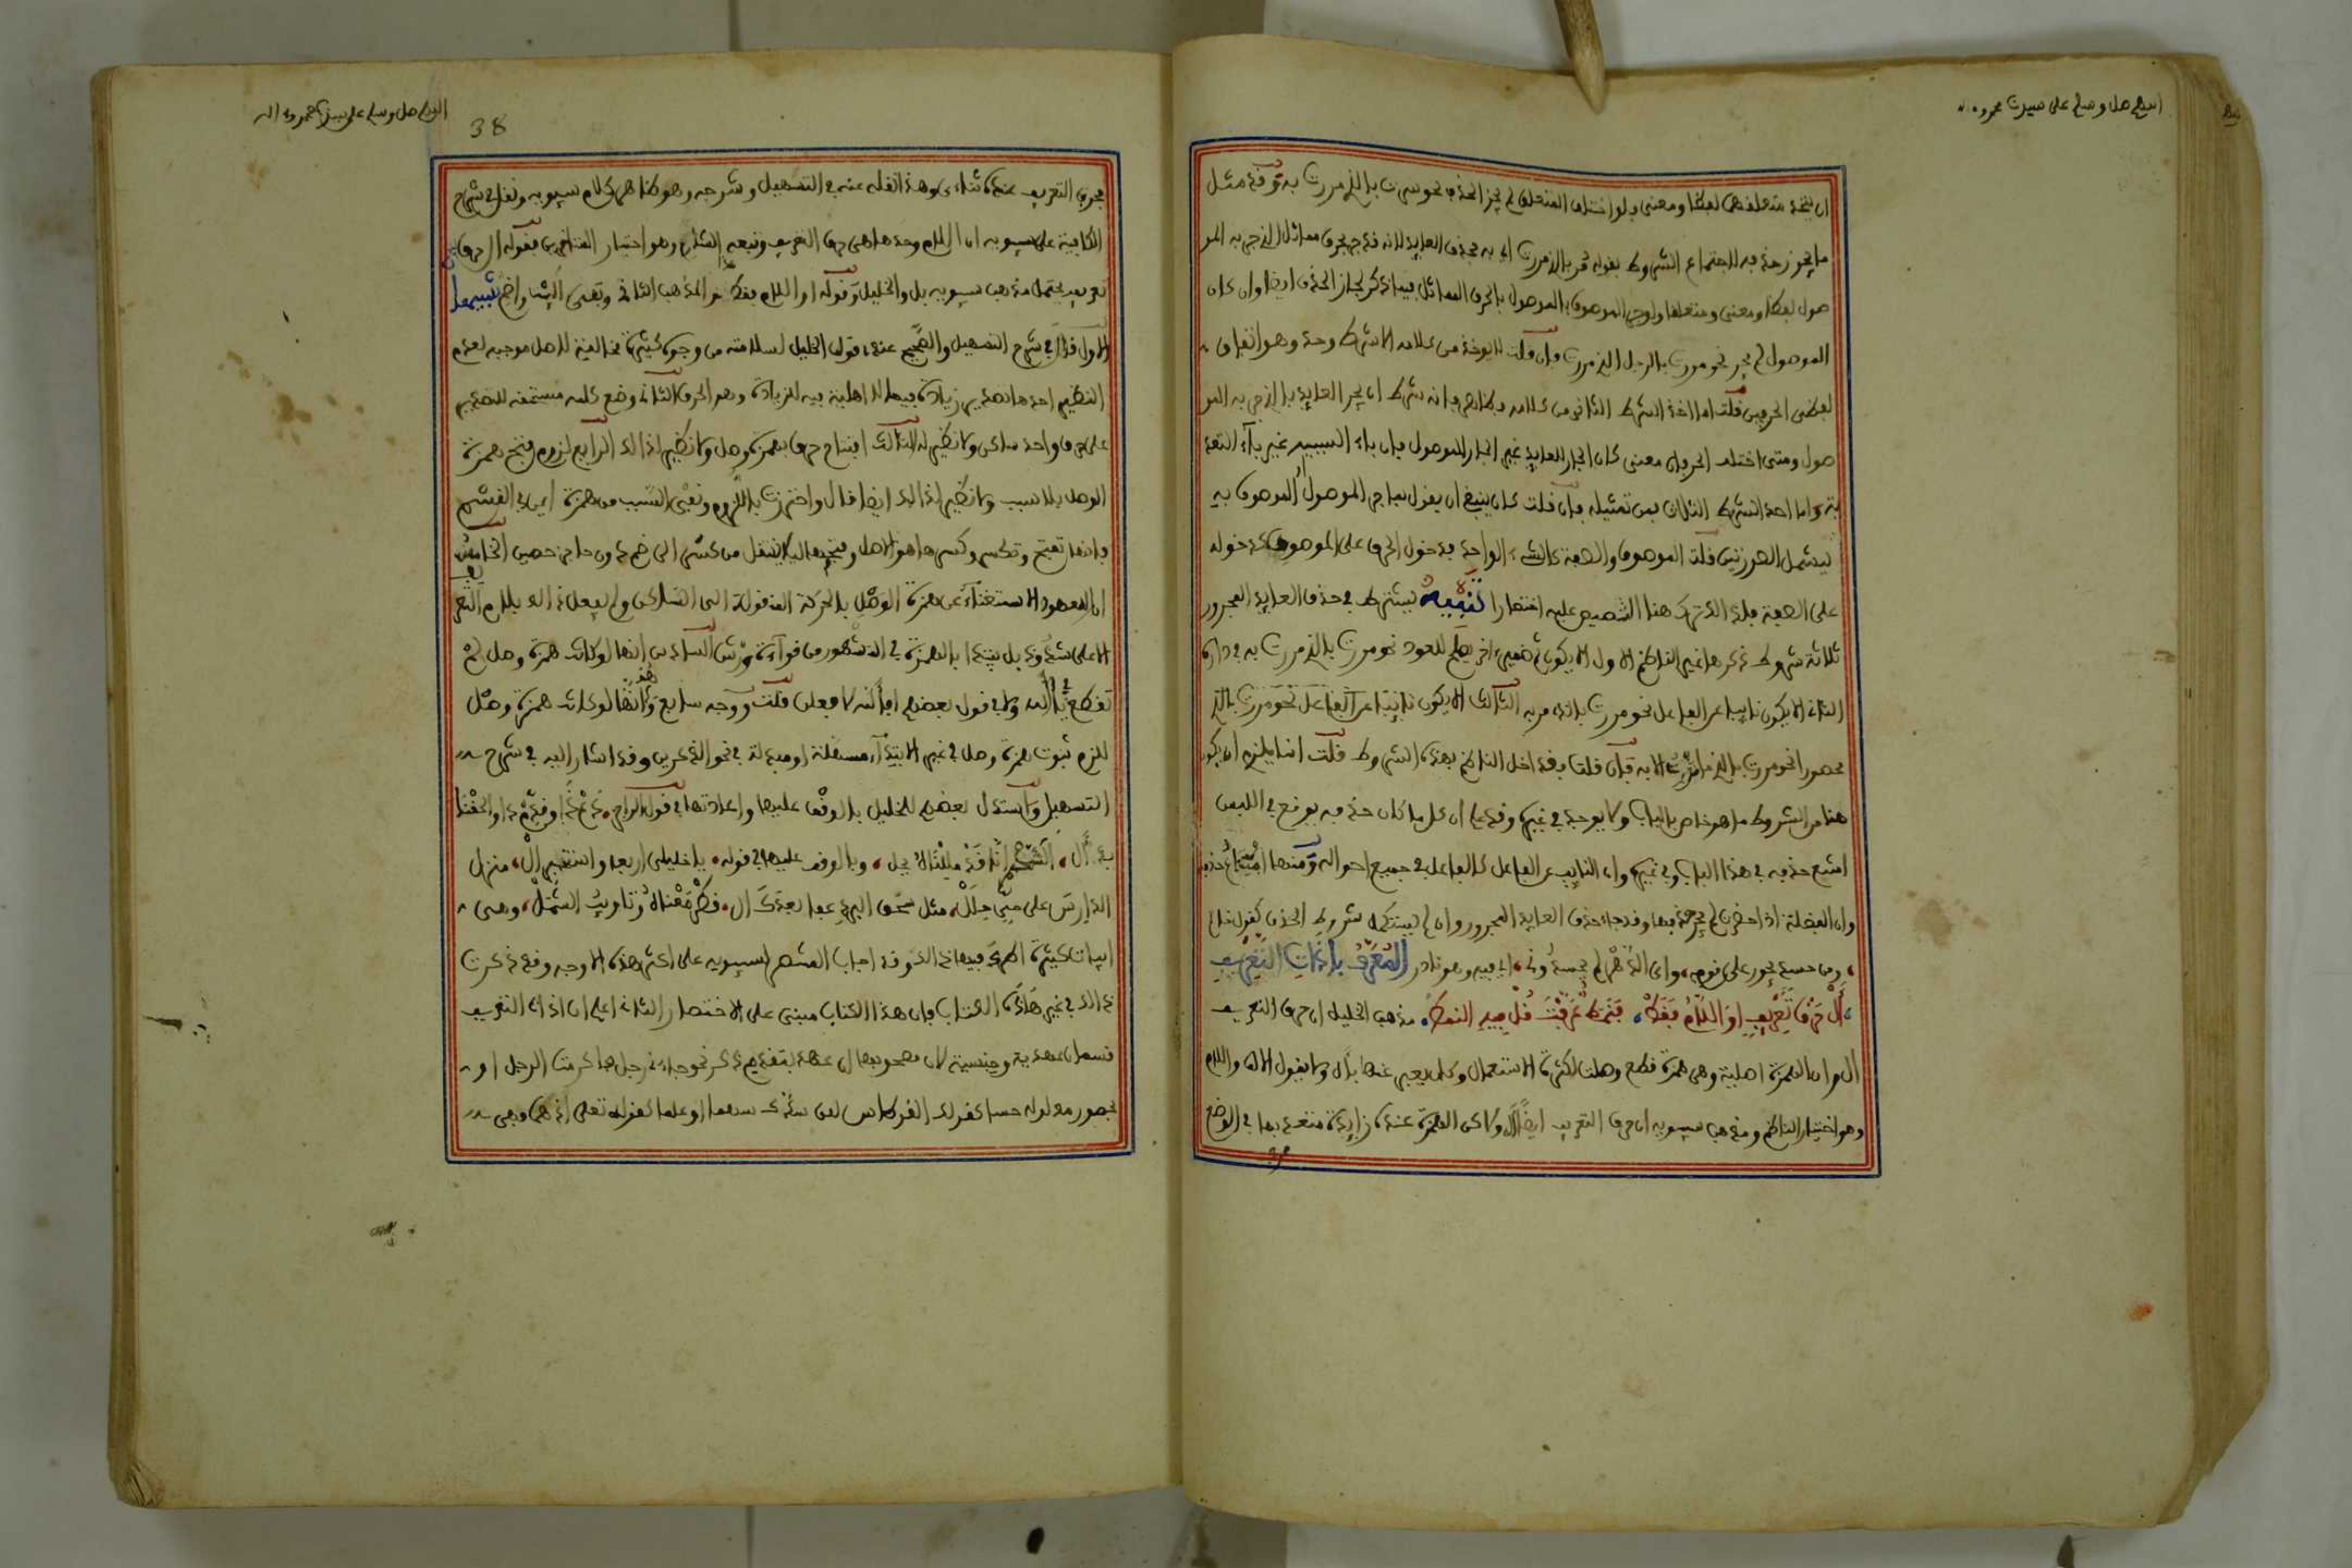 اللهم صل وسلم على سيدنا محمد وءاله
ان يتحد متعلقهما لفظا ومعنى فلو اختلف المتعلق لم يجز الحذف نحو سررت بالذي مررت به وقد مثل
ما يجوز حذفه لاجتماع الشروط بقوله مر بالذي مررت اي به بحذف العايد لانه قد جر بحرف مماثل للذي جر به المو
صول لفظا ومعنى ومتعلقا ولو جر الموصوف بالموصول بالحرف المماثل فيما ذكر لجاز الحذف ايضا وان كان
الموصول لم يجر نحو مررت بالرجل الذي مررت فان قلت لا يوخذ من كلامه الا شرط واحد وهو اتفاق
لفظي الحرفين قلت اما اخذ الشرط الثاني من كلامه فظاهر فانه شرط ان يجر العايد بالذي جر به المو
صول ومتى اختلف الحرفان معنى كان الجار للعايد غير الجار للموصول فان باء السببية غير باء التعد
ية واما احد الشرط الثالث فمن تمثيله فان قلت كان ينبغي ان يقول بما جر الموصول او الموصوف به
ليشمل الصورتين قلت الموصوف والصفة كالشيء الواحد فدخول الحرف على الموصوف كدخوله
على الصفة فلذلك ترك هنا التنصيص عليه اختصارا تنبيه يشترط في حذف العايد المجرور
ثلاثة شروط ذكرها غير الناظم الاول الا يكون ثم ضمير اخر يصلح للعود نحو مررت بالذي مررت به في داره
الثاني الا يكون نايبا عن الفاعل نحو مررت بالذي مر به الثالث الا يكون
محصورا نحو مررت بالذي ما مررت الا به فان قلت فقد اخل الناظم بهذه الشروط قلت انما يلزم ان يكون
هنا من الشروط ما هو خاص بالباب ولا يوجد في غيره وقد علم ان كل ما كان حذفه يوقع في اللبس
امتنع حذفه في هذا الباب وفي غيره وان النايب عن الفاعل كالفاعل في جميع احواله ومنها امتناع حذفه
وان الفضلة اذا حصرت لم يجز حذفها وقد جاء حذف العايد المجرور وان لم يستكمل شروط الحذف كقول حاتم
ومن حسد يجور علي قومي، واي الدهر لم يحسدوني، اي فيه وهو نادر المعرف باداة التعريف
أل حرف تعريف او اللام فقط، فنمط عرفت قل فيه النمط، مذهب الخليل ان حرف التعريف
ال وان الهمزة اصلية وهي همزة قطع وصلت لكثرة الاستعمال وكان يعبر عنها بال ولا يقول الالف واللام
وهو اختيار الناظم ومذهب سيبويه ان حرف التعريف ايضا ال ولاكن الهمزة عنده زايدة معتد بها في الوضع
اللهم صل وسلم على سيدنا محمد وءاله
38
فحرف التعريف عنده ثناءي وهذا نقله عنه في التسهيل وشرحه وهو ظاهر كلام سيبويه ونقل في شرح
الكافية على سيبويه ان اللام وحدها هي حرف التعريف وتبعه الشارح وهو اختيار المتاخرين فقوله ال حرف
تعريف يحتمل مذهب سيبويه بل والخليل وقوله او اللام فقط هو المذهب الثالث
الاول قال في شرح التسهيل والصحيح عندي قول الخليل لسلامته من وجوه كثيرة مخالفة للاصل موجبة لعدم
النظير احدها تصدير زيادة فيما لا اهلية فيه للزيادة وهو الحرف الثاني وضع كلمة مستحقة للتصدير
على حرف واحد ساكن ولا نظير له الثالث افتتاح حرف بهمزة وصل ولا نظير لذالك الرابع لزوم فتح همزة
الوصل بلا سبب ولا نظير لذالك ايضا قال واحترزت باللزوم ونفي السبب من همزة ايمن في القسم
فانها تفتح وتكسر وكسرها هو الاصل وفتحها ليلا ينتقل من كسر الى ضم دون حاجز حصين الخامس
ان المعهود الاستغناء عن همزة الوصل بالحركة المنقولة الى الساكن ولم يفعل ذالك بلام التعريف
الا على شذوذ بل يبتدا بالهمزة في المشهور من قراءة ورش السادس انها لو كانت همزة وصل لم
تقطع في يا الله ولا في قول بعضهم افالله لافعلن قلت ووجه سابع وهو انها لو كانت همزة وصل
للزم ثبوت همزة وصل في غير الابتداء مسهلة او مبدلة في نحو الذكرين وقد اشار اليه في شرح
التسهيل واستدل بعضهم للخليل بالوقف عليها واعادتها في قول الراجز، دع ذا وعجل ذا والحقنا
بذا ل، الشحم انا قد مللناه بجل، وبالوقف عليها في قوله، يا خليلي اربعا واستخبرا ال، منزل
الدارس على حي حلال، مثل سحق البرد عفى بعدك ال، قطر مغناه وتاويب الشمال، وهي
ابيات كثيرة اطرد فيها ذالك وقد اجاب المنتصر لسيبويه على اكثر هذه الاوجه وقد ذكرت
ذالك في غير هاذا الكتاب فان هذا الكتاب مبني على الاختصار الثاني اعلم ان اداة التعريف
قسمان عهدية وجنسية لان مصحوبها ان عهد بتقدم ذكر نحو جاءني رجل فاكرمت الرجل او
بحضور مدلوله حسا كقولك القرطاس لمن سدد سهما او علما كقوله تعلى اذ هما في